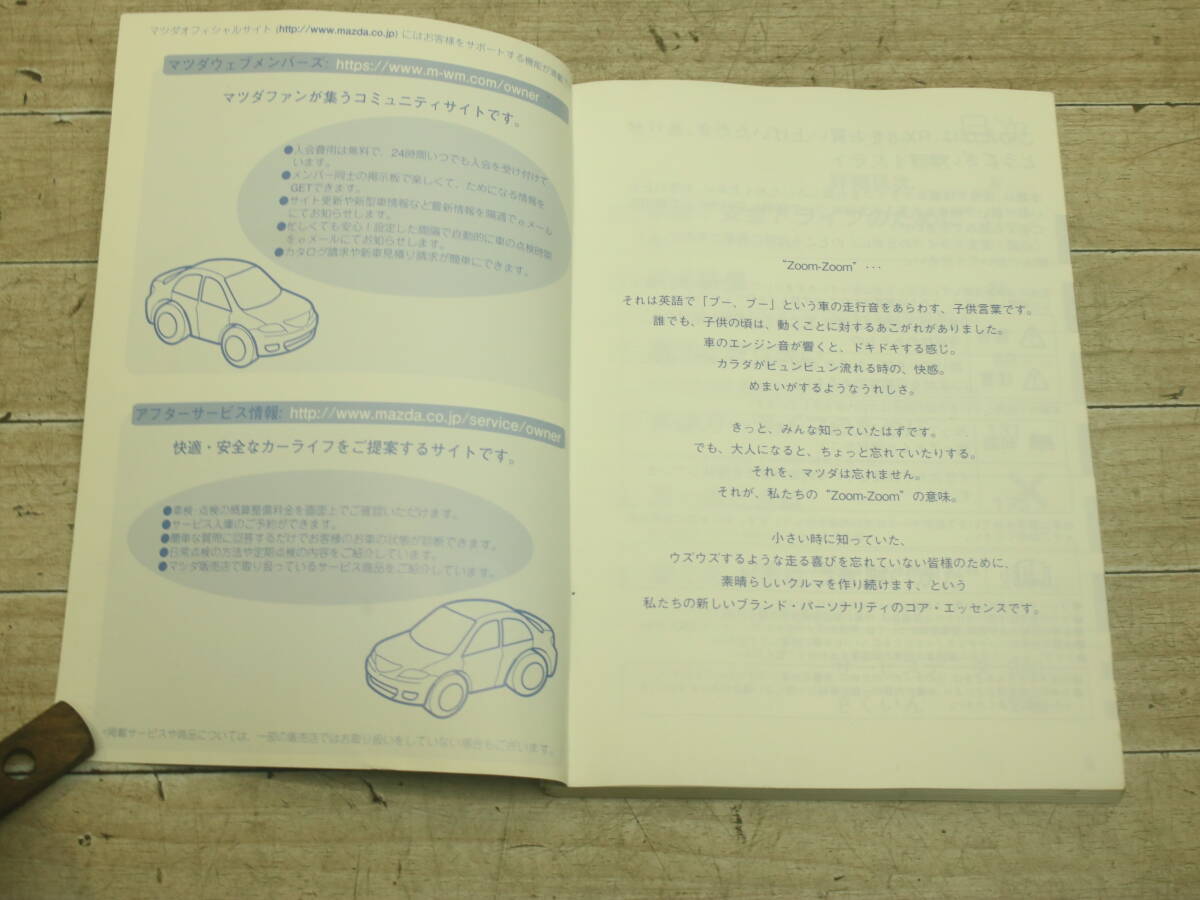 マツダオフィシャルサイト (http://www.mazda.co.jp) にはお客様をサポートする機能が満載
マツダウェブメンバーズ: https://www.m-wm.com/owner
マツダファンが集うコミュニティサイトです。
●入会費用は無料で、24時間いつでも入会を受け付けて
います。
●メンバー同士の掲示板で楽しくて、ためになる情報を
GETできます。
●サイト更新や新型車情報など最新情報を隔週でeメール
にてお知らせします。
●忙しくても安心！設定した間隔で自動的に車の点検時期
をeメールにてお知らせします。
●カタログ請求や新車見積り請求が簡単にできます。
アフターサービス情報: http://www.mazda.co.jp/service/owner
快適・安全なカーライフをご提案するサイトです。
●車検・点検の概算整備料金を画面上でご確認いただけます。
●サービス入庫のご予約ができます。
●簡単な質問に回答するだけでお客様のお車の状態が診断できます。
●日常点検の方法や定期点検の内容をご紹介しています。
●マツダ販売店で取り扱っているサービス商品をご紹介しています。
*掲載サービスや商品については、一部の販売店ではお取り扱いをしていない場合もございます。
“Zoom-Zoom”・・・
それは英語で「ブー、ブー」という車の走行音をあらわす、子供言葉です。
誰でも、子供の頃は、動くことに対するあこがれがありました。
車のエンジン音が響くと、ドキドキする感じ。
カラダがビュンビュン流れる時の、快感。
めまいがするようなうれしさ。
きっと、みんな知っていたはずです。
でも、大人になると、ちょっと忘れていたりする。
それを、マツダは忘れません。
それが、私たちの“Zoom-Zoom”の意味。
小さい時に知っていた、
ウズウズするような走る喜びを忘れていない皆様のために、
素晴らしいクルマを作り続けます、という
私たちの新しいブランド・パーソナリティのコア・エッセンスです。